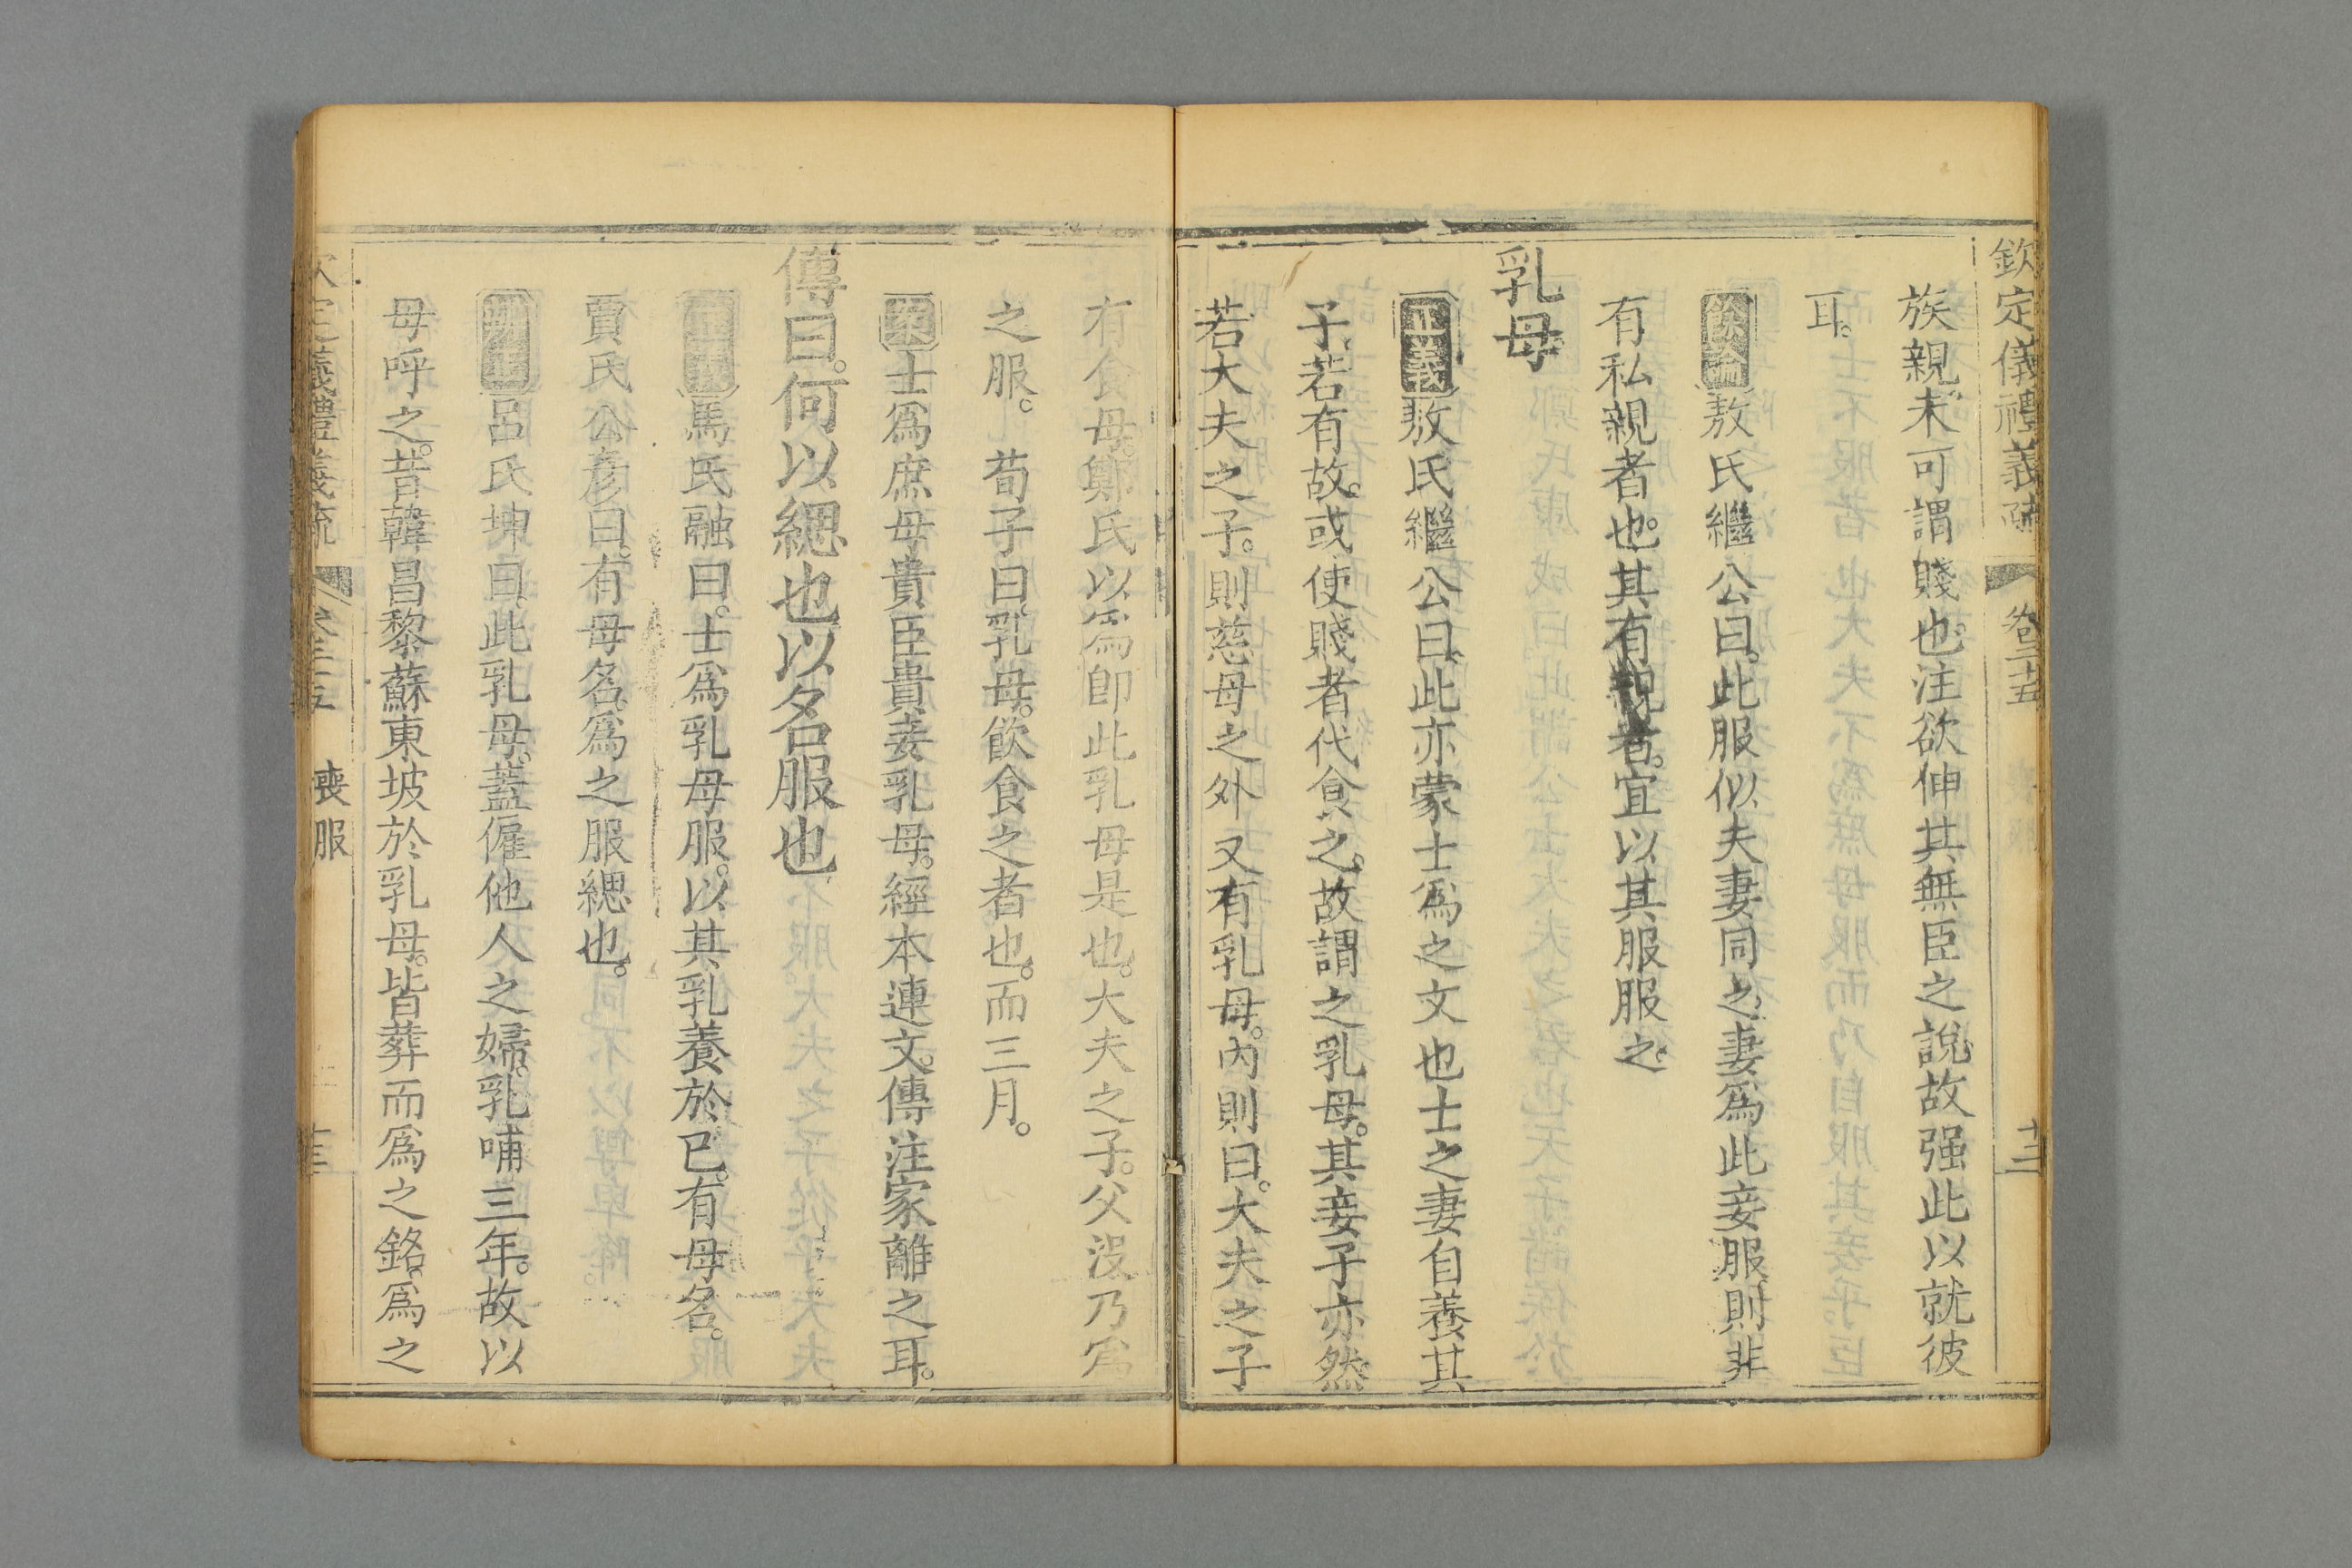 欽定儀禮義疏 卷二十五 十二
族親未可謂賤也注欲伸其無臣之說故强此以就彼
耳。
餘論敖氏繼公曰。此服似夫妻同之。妻爲此妾服。則非
有私親者也。其有親者。宜以其服服之。
乳母
正義敖氏繼公曰。此亦蒙士爲之文也士之妻自養其
子。若有故。或使賤者代食之。故謂之乳母。其妾子亦然
若大夫之子。則慈母之外又有乳母。內則曰。大夫之子
有食母。鄭氏以爲卽此乳母是也。大夫之子。父沒乃爲
之服。 荀子曰。乳母。飲食之者也。而三月。
案士爲庶母貴臣貴妾乳母。經本連文。傳注家離之耳。
傳曰。何以緦也以名服也
正義馬氏融曰。士爲乳母服。以其乳養於已。有母名。
賈氏公彥曰。有母名。爲之服緦也。
呂氏坤曰。此乳母。蓋僱他人之婦。乳哺三年。故以
母呼之。昔韓昌黎蘇東坡於乳母。皆葬而爲之銘。爲之
定儀禮義疏 卷二十五 喪服 十三